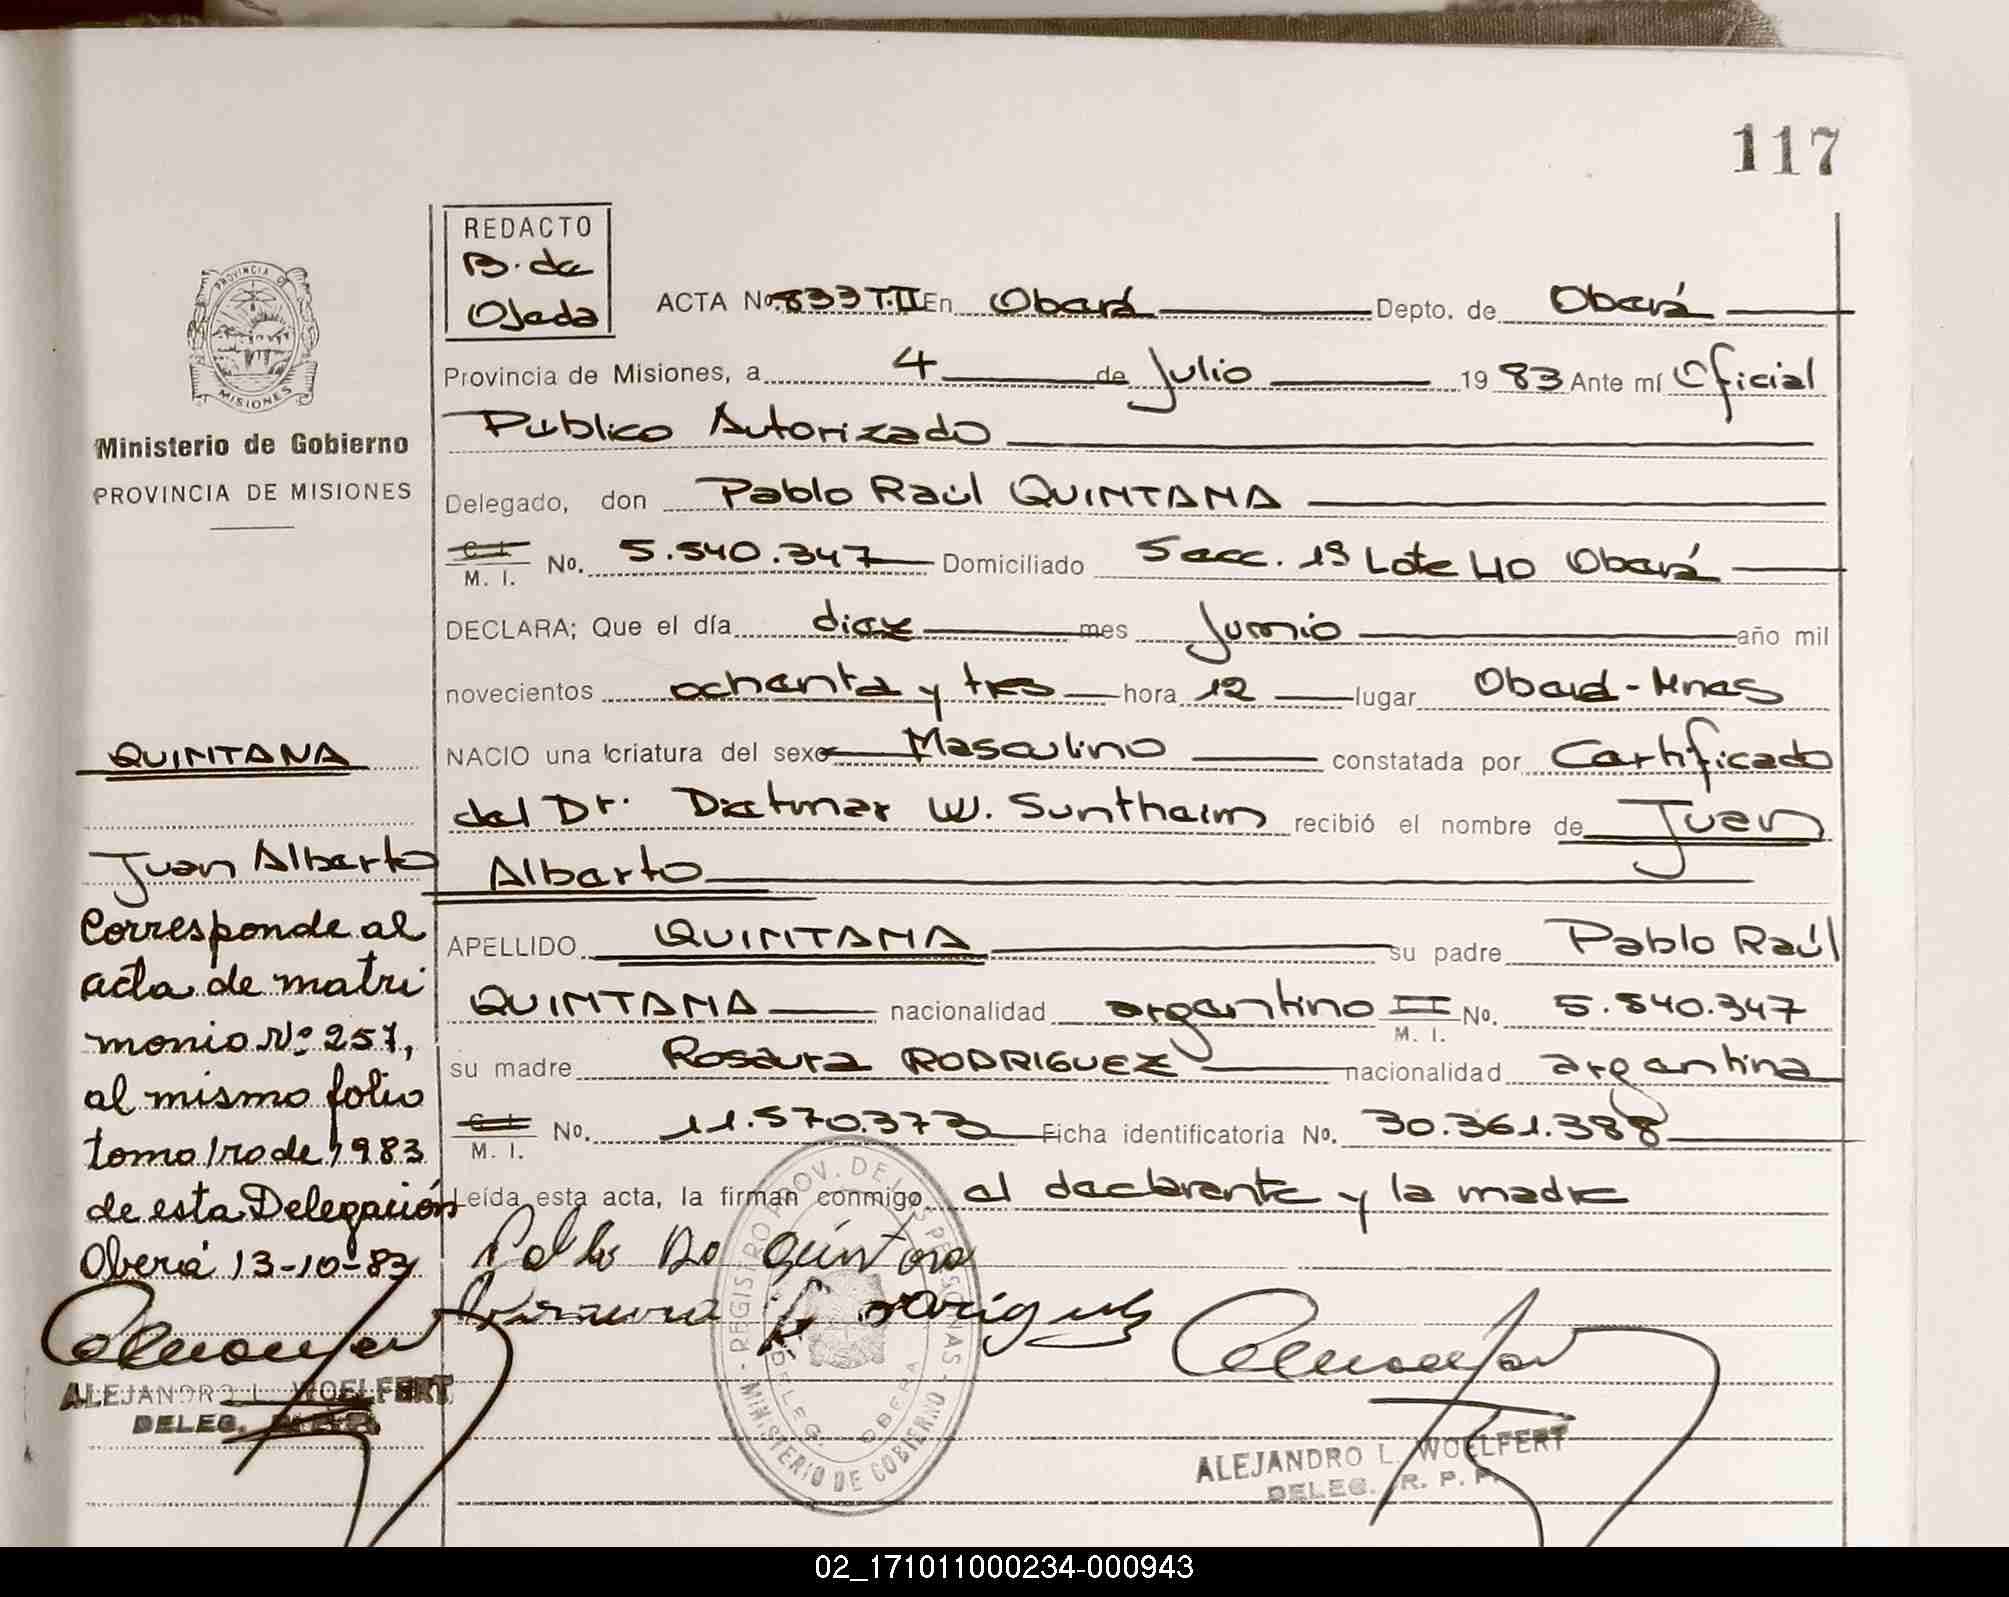 117
REDACTO
B. de
Ojeda
ACTA No. 833 T.II En Oberá Depto. de Oberá
Provincia de Misiones, a 4 de Julio 1983 Ante mí Oficial
Publico Autorizado
Delegado, don Pablo Raúl QUINTANA
C. I. M. I. No. 5.540.347 Domiciliado Secc. 19 Lote 40 Oberá
DECLARA; Que el día diez mes Junio año mil
novecientos ochenta y tres hora 12 lugar Oberá-Mnes
NACIO una criatura del sexo Masculino constatada por Certificado
del Dr. Dietmar W. Suntheim recibió el nombre de Juan
Alberto
APELLIDO QUINTANA su padre Pablo Raúl
QUINTANA nacionalidad argentino M. I. No. 5.540.347
su madre Rosaura RODRIGUEZ nacionalidad argentina
C. I. M. I. No. 11.570.373 Ficha identificatoria No. 30.361.388
Leída esta acta, la firman conmigo el declarante y la madre
Quintana
REGISTRO PROV. DE LAS PERSONAS - MINISTERIO DE GOBIERNO -
DELEG. OBERA
ALEJANDRO L. WOELFERT
DELEG. R. P. P.
PROVINCIA DE
MISIONES
Ministerio de Gobierno
PROVINCIA DE MISIONES
QUINTANA
Juan Alberto
Corresponde al
acta de matri
monio Nº 257,
al mismo folio
tomo 1ro de 1983
de esta Delegación
Oberá 13-10-83
ALEJANDRO L. WOELFERT
DELEG.
02_171011000234-000943